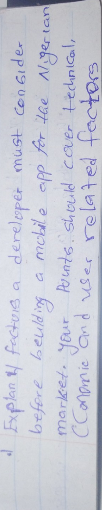 1) Explain 4 factors a developer must consider
before building a mobile app for the Nigerian
market. Your Points should cover technical,
Economic and user related factors